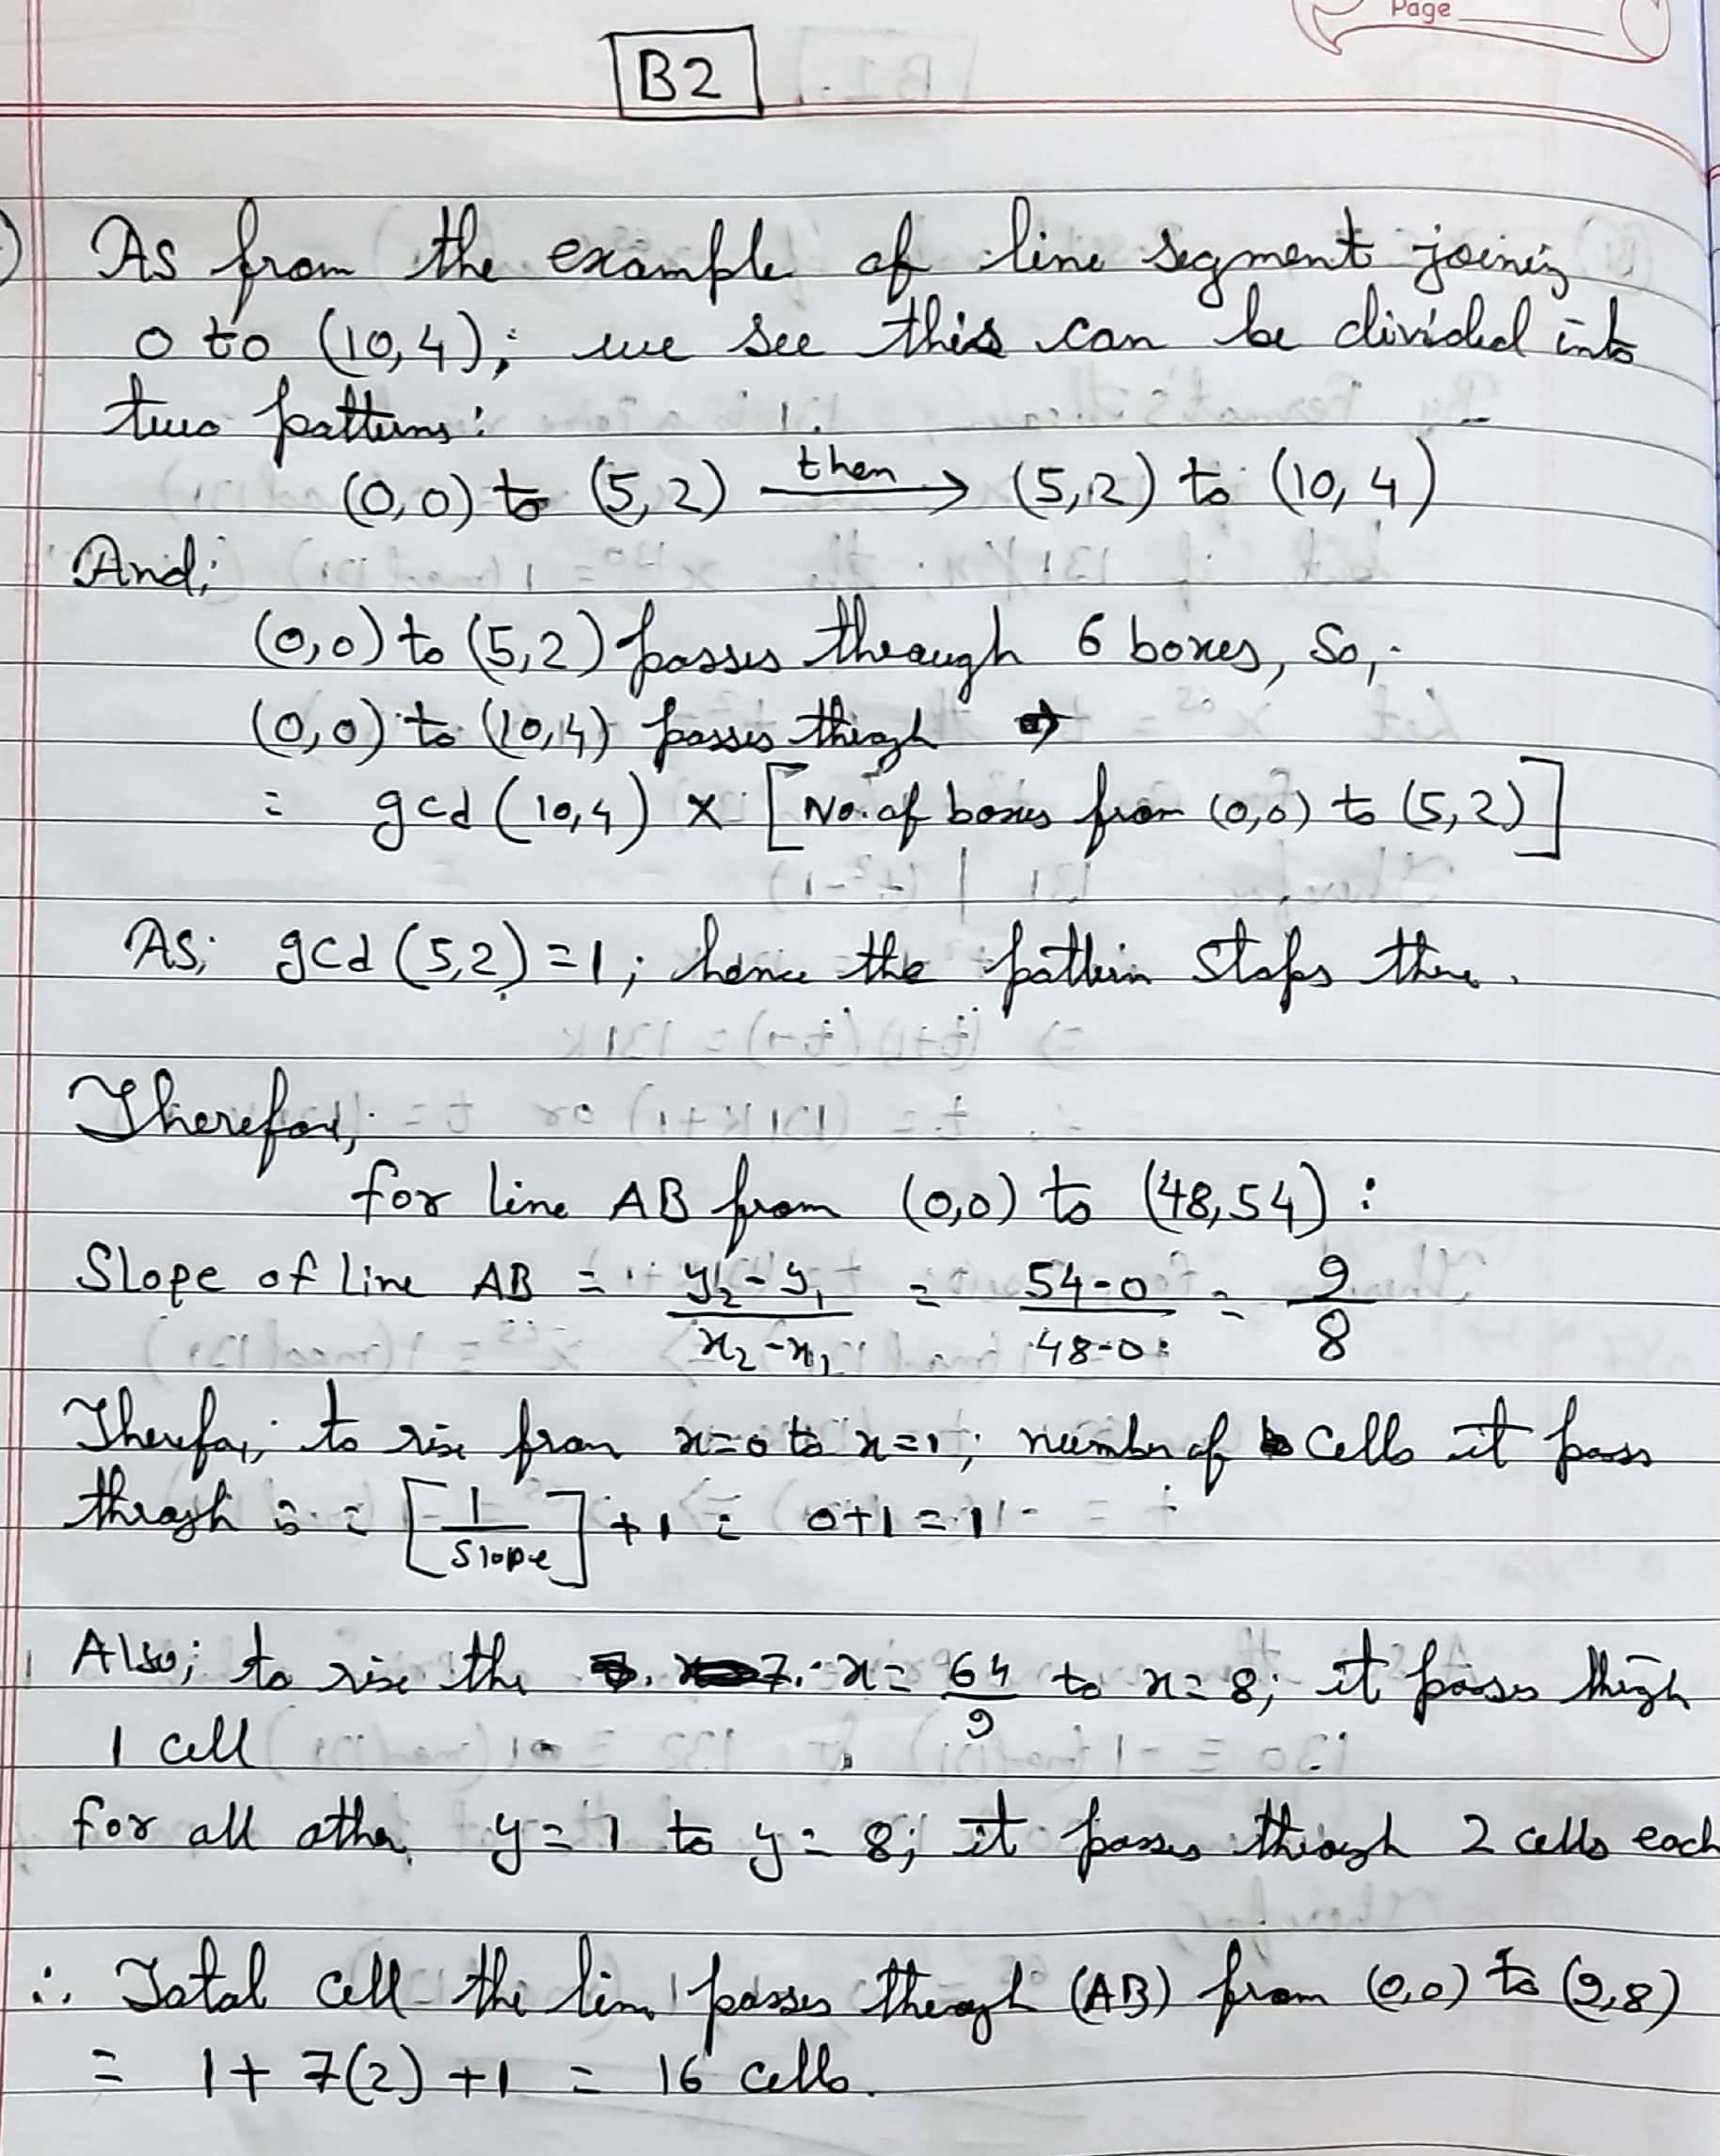 Page
B2
As from the example of line segment joining
0 to (10,4); we see this can be divided into
two patterns:
(0,0) to (5,2) then → (5,2) to (10,4)
And;
(0,0) to (5,2) passes through 6 boxes, So,
(0,0) to (10,4) passes through
= gcd (10,4) x [No. of boxes from (0,0) to (5,2)]
As; gcd (5,2) = 1; hence the pattern stops there.
Therefore,
for line AB from (0,0) to (48,54) :
Slope of line AB = y₂-y₁ / x₂-x₁ = 54-0 / 48-0 = 9/8
Therefore; to rise from x=0 to x=1; number of cells it pass
through is = [1/Slope] +1 = 0+1 = 1
Also; to rise the x= 64/9 to x=8; it passes through
1 cell
for all other y=1 to y=8; it passes through 2 cells each
∴ Total cell the line passes through (AB) from (0,0) to (9,8)
= 1+ 7(2) +1 = 16 cells.